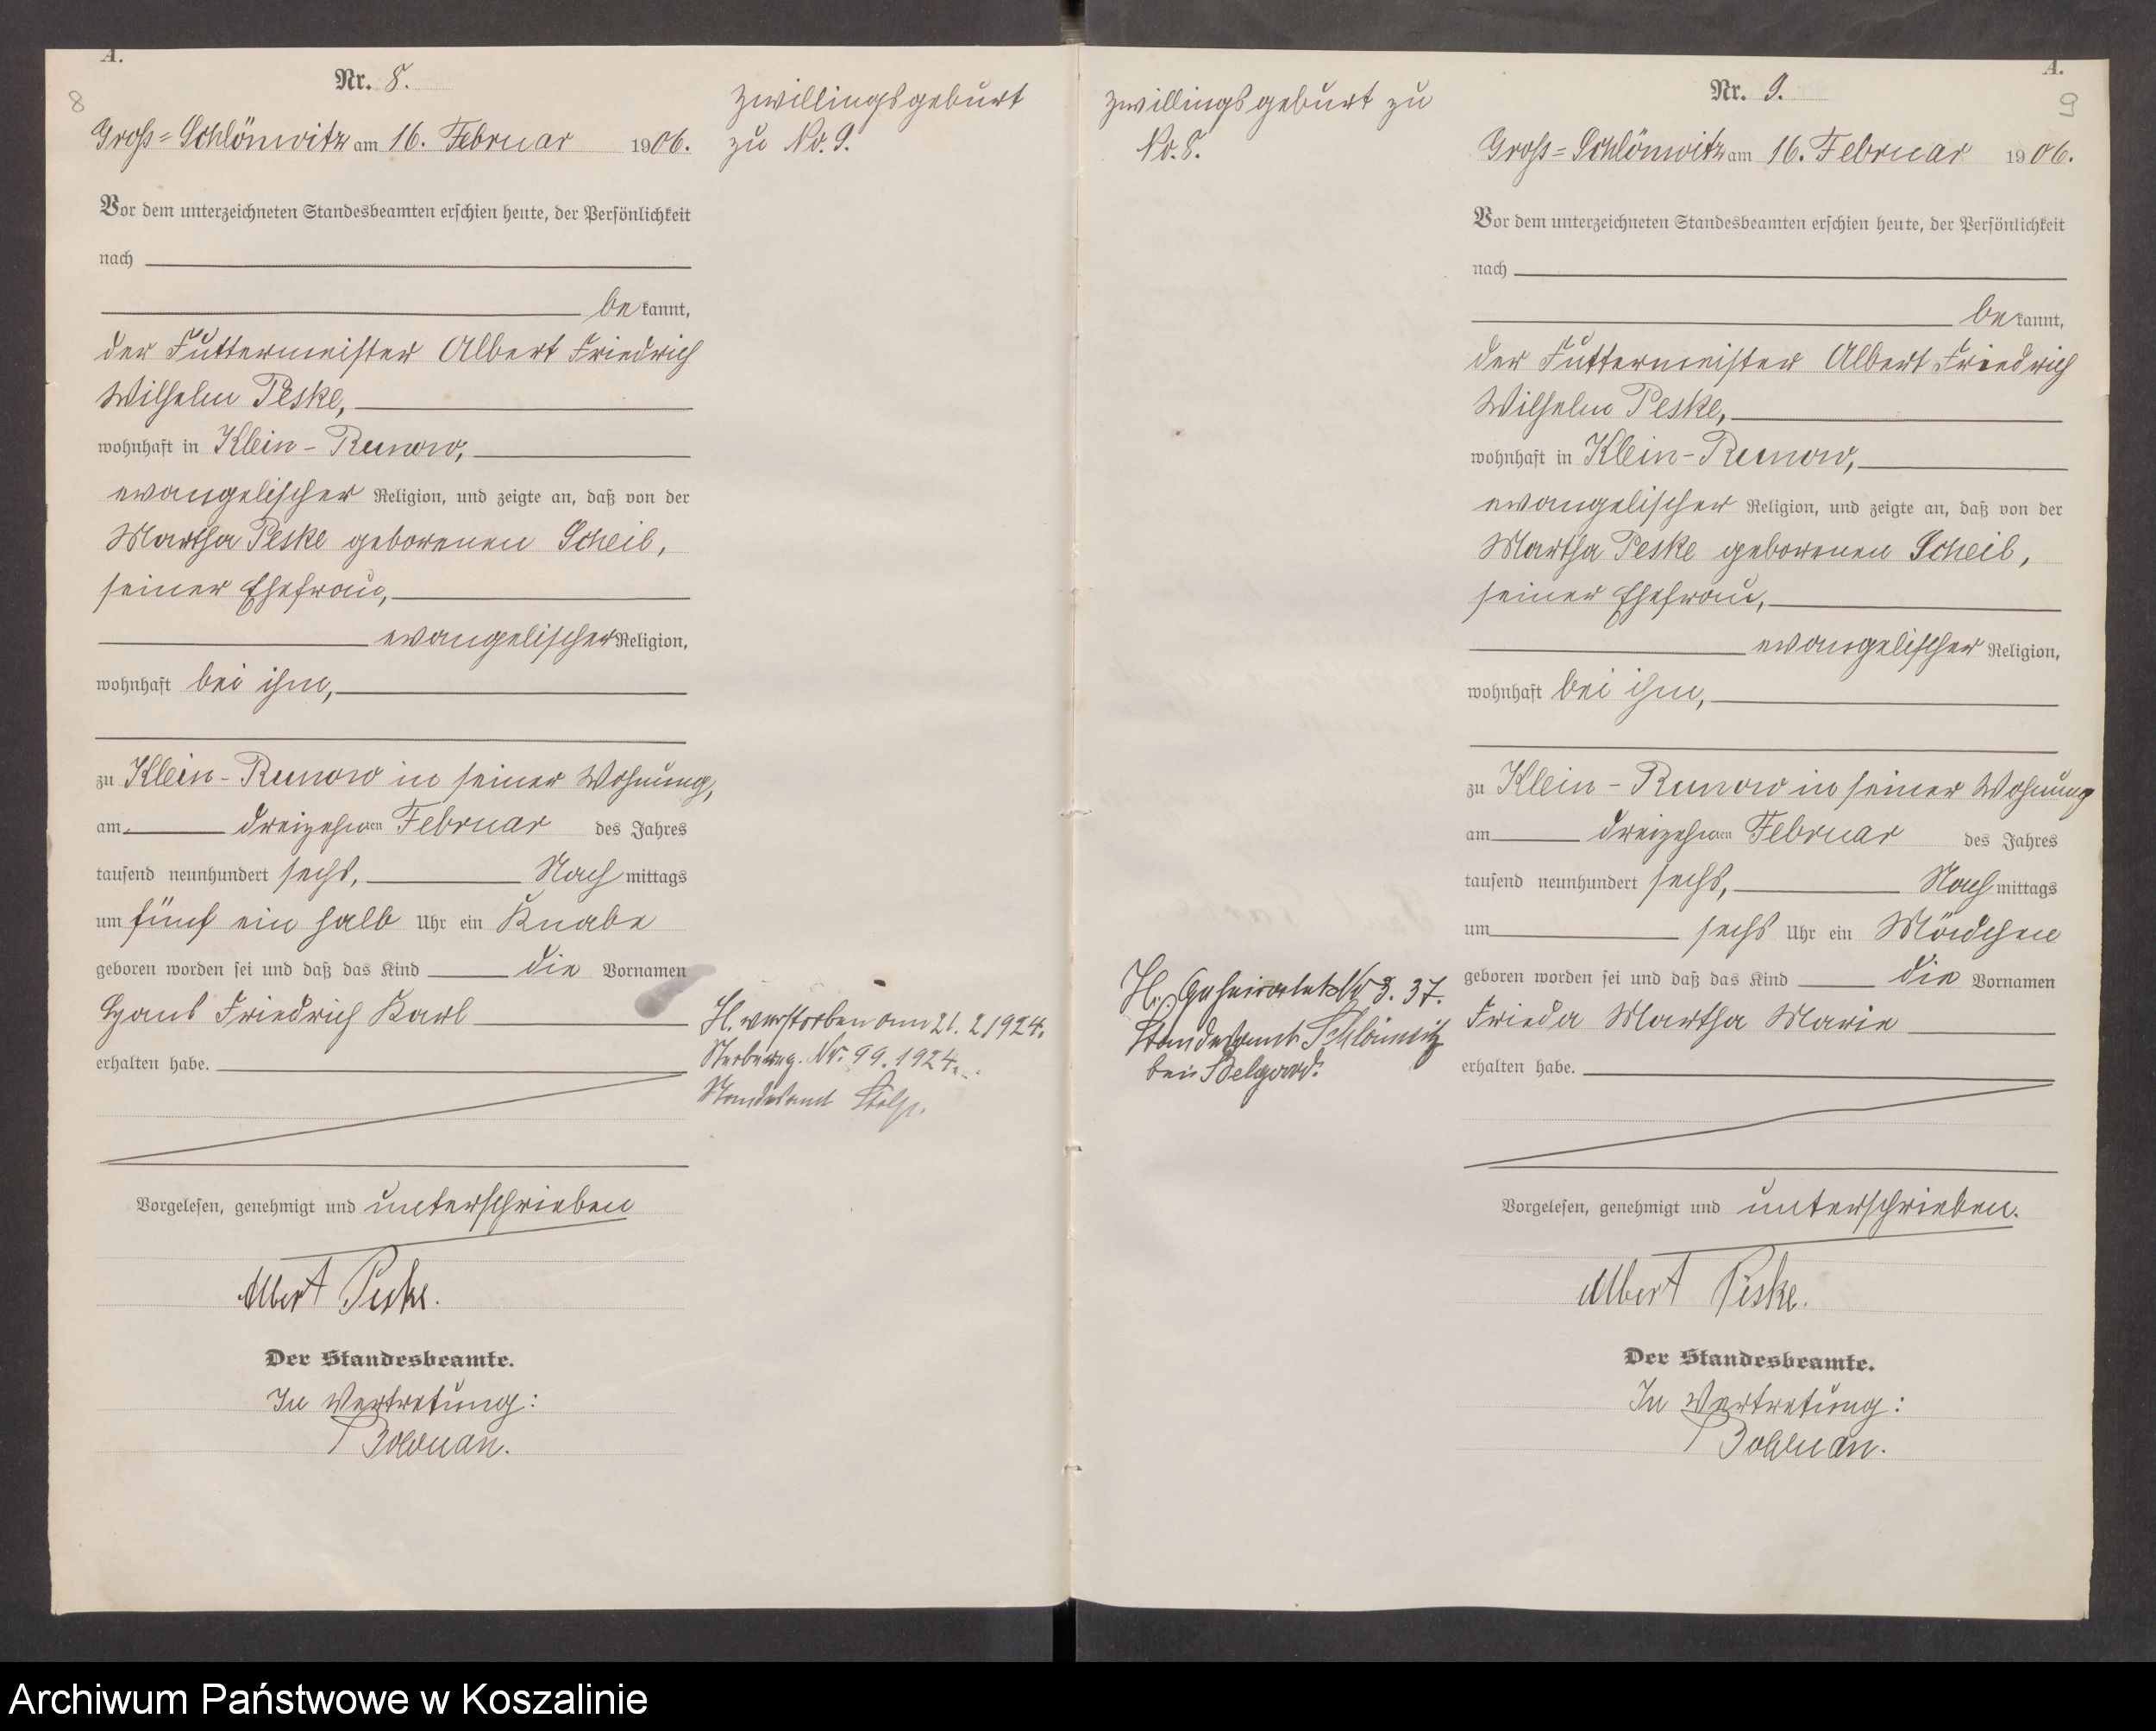 A.
8
Nr. 8.
Groß=Schlönwitz am 16. Februar 1906.
Vor dem unterzeichneten Standesbeamten erschien heute, der Persönlichkeit
nach
bekannt,
der Futtermeister Albert Friedrich
Wilhelm Peske,
wohnhaft in Klein-Runow,
evangelischer Religion, und zeigte an, daß von der
Martha Peske geborenen Scheil,
seiner Ehefrau,
evangelischer Religion,
wohnhaft bei ihm,
zu Klein-Runow in seiner Wohnung,
am dreizehnten Februar des Jahres
tausend neunhundert sechs, Nachmittags
um fünf ein halb Uhr ein Knabe
geboren worden sei und daß das Kind die Vornamen
Hans Friedrich Karl
erhalten habe.
Vorgelesen, genehmigt und unterschrieben
Albert Peske.
Der Standesbeamte.
In Vertretung:
Bolduan.
Zwillingsgeburt
zu No. 9.
H. verstorben am 21. 2 1924.
Sterbereg. Nr. 99. 1924.
Standesamt Stolp.
Zwillingsgeburt zu
No. 8.
H. Geheiratet Nr 3. 37.
Standesamt Schlönwitz
bei Belgard.
A.
9
Nr. 9.
Groß=Schlönwitz am 16. Februar 1906.
Vor dem unterzeichneten Standesbeamten erschien heute, der Persönlichkeit
nach
bekannt,
der Futtermeister Albert Friedrich
Wilhelm Peske,
wohnhaft in Klein-Runow,
evangelischer Religion, und zeigte an, daß von der
Martha Peske geborenen Scheil,
seiner Ehefrau,
evangelischer Religion,
wohnhaft bei ihm,
zu Klein-Runow in seiner Wohnung
am dreizehnten Februar des Jahres
tausend neunhundert sechs, Nachmittags
um sechs Uhr ein Mädchen
geboren worden sei und daß das Kind die Vornamen
Frieda Martha Marie
erhalten habe.
Vorgelesen, genehmigt und unterschrieben.
Albert Peske.
Der Standesbeamte.
In Vertretung:
Bolduan.
Archiwum Państwowe w Koszalinie